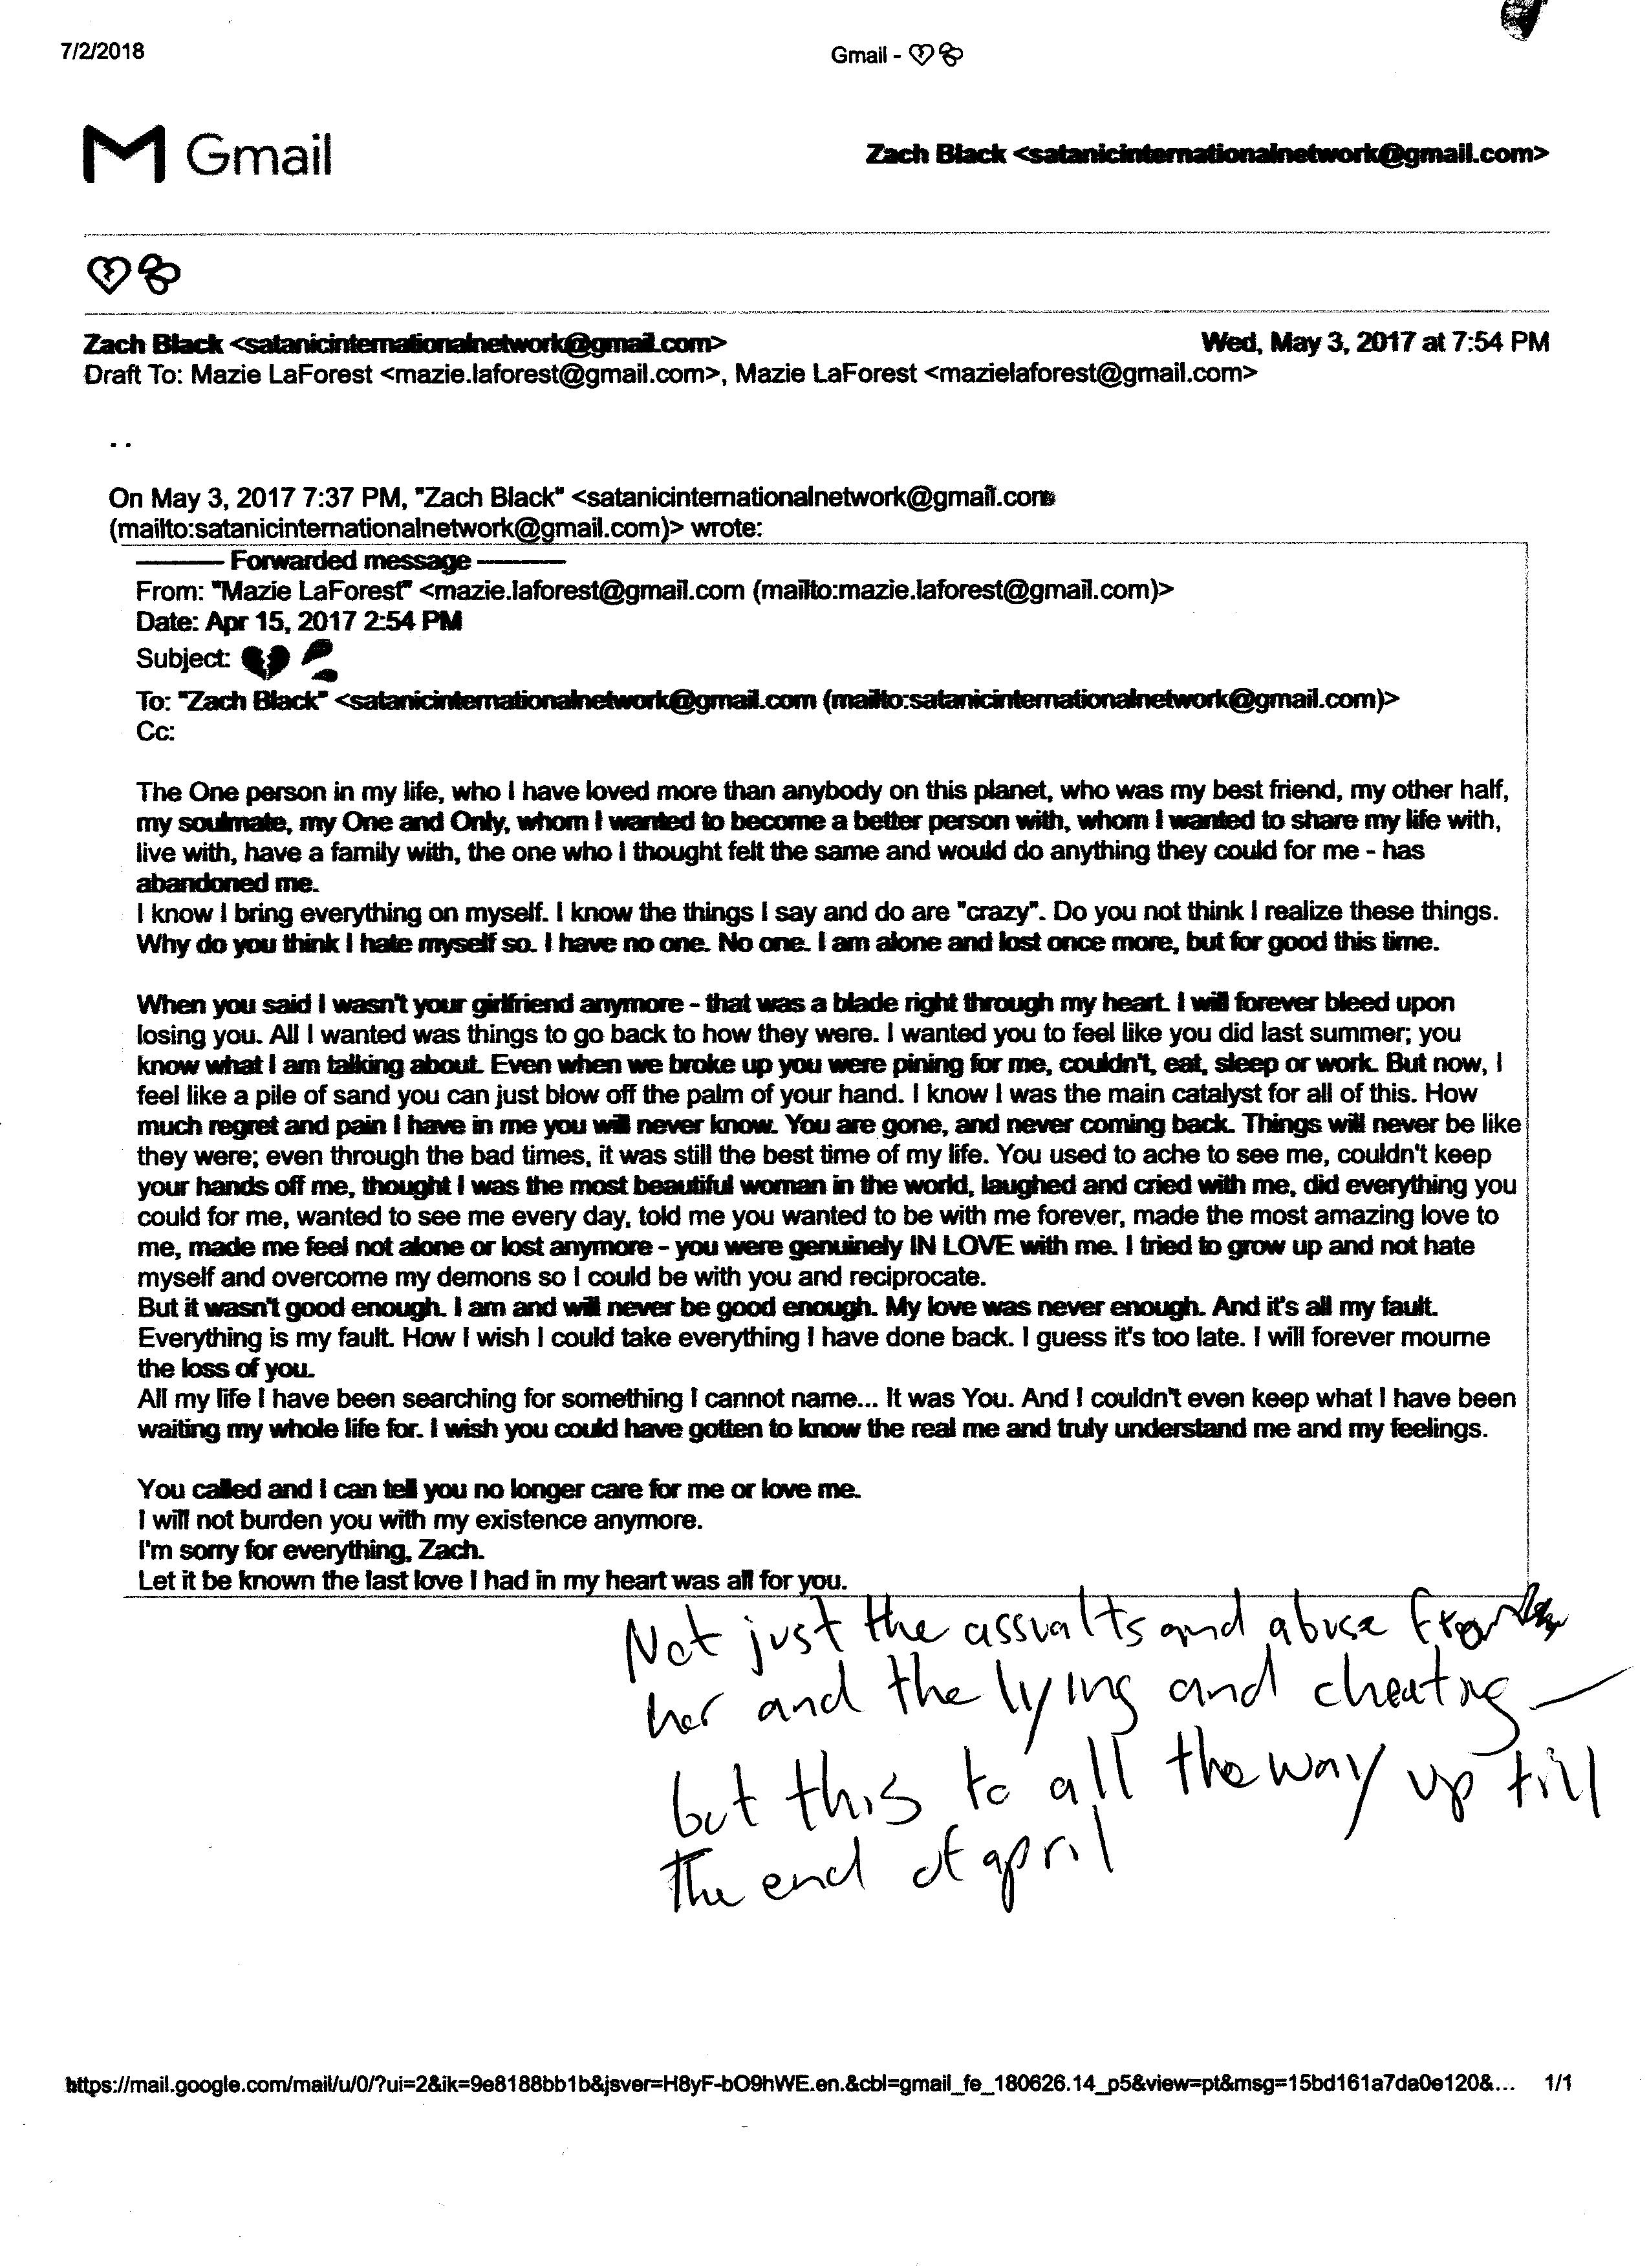 7/2/2018
Gmail - 💔💫
M Gmail
Zach Black <satanicinternationalnetwork@gmail.com>
Zach Black <satanicinternationalnetwork@gmail.com>
Wed, May 3, 2017 at 7:54 PM
Draft To: Mazie LaForest <mazie.laforest@gmail.com>, Mazie LaForest <mazielaforest@gmail.com>
..
On May 3, 2017 7:37 PM, "Zach Black" <satanicinternationalnetwork@gmail.com
(mailto:satanicinternationalnetwork@gmail.com)> wrote:
——— Forwarded message ———
From: "Mazie LaForest" <mazie.laforest@gmail.com (mailto:mazie.laforest@gmail.com)>
Date: Apr 15, 2017 2:54 PM
Subject:
To: "Zach Black" <satanicinternationalnetwork@gmail.com (mailto:satanicinternationalnetwork@gmail.com)>
Cc:
The One person in my life, who I have loved more than anybody on this planet, who was my best friend, my other half,
my soulmate, my One and Only, whom I wanted to become a better person with, whom I wanted to share my life with,
live with, have a family with, the one who I thought felt the same and would do anything they could for me - has
abandoned me.
I know I bring everything on myself. I know the things I say and do are "crazy". Do you not think I realize these things.
Why do you think I hate myself so. I have no one. No one. I am alone and lost once more, but for good this time.
When you said I wasn't your girlfriend anymore - that was a blade right through my heart. I will forever bleed upon
losing you. All I wanted was things to go back to how they were. I wanted you to feel like you did last summer; you
know what I am talking about. Even when we broke up you were pining for me, couldn't, eat, sleep or work. But now, I
feel like a pile of sand you can just blow off the palm of your hand. I know I was the main catalyst for all of this. How
much regret and pain I have in me you will never know. You are gone, and never coming back. Things will never be like
they were; even through the bad times, it was still the best time of my life. You used to ache to see me, couldn't keep
your hands off me, thought I was the most beautiful woman in the world, laughed and cried with me, did everything you
could for me, wanted to see me every day, told me you wanted to be with me forever, made the most amazing love to
me, made me feel not alone or lost anymore - you were genuinely IN LOVE with me. I tried to grow up and not hate
myself and overcome my demons so I could be with you and reciprocate.
But it wasn't good enough. I am and will never be good enough. My love was never enough. And it's all my fault.
Everything is my fault. How I wish I could take everything I have done back. I guess it's too late. I will forever mourne
the loss of you.
All my life I have been searching for something I cannot name... It was You. And I couldn't even keep what I have been
waiting my whole life for. I wish you could have gotten to know the real me and truly understand me and my feelings.
You called and I can tell you no longer care for me or love me.
I will not burden you with my existence anymore.
I'm sorry for everything, Zach.
Let it be known the last love I had in my heart was all for you.
Not just the assualts and abuse from
her and the lying and cheating -
but this to all the way up till
the end of april
https://mail.google.com/mail/u/0/?ui=2&ik=9e8188bb1b&jsver=H8yF-bO9hWE.en.&cbl=gmail_fe_180626.14_p5&view=pt&msg=15bd161a7da0e120&... 1/1